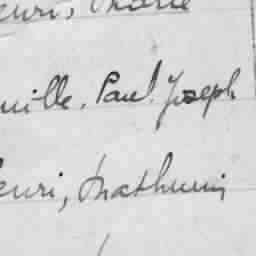 enri, Marie
uille, Paul Joseph
enri, Mathurin